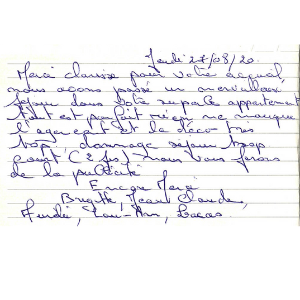 Jeudi 27/08/20.
Merci Clarisse pour votre accueil,
nous avons passé un merveilleux
séjour dans votre superbe appartement
Tout est parfait rien ne manque
l'agencept et la déco très
top, dommage séjour trop
court (2 jrs) - nous vous ferons
de la publicité
Encore Merci
Brigitte, Jean Claude,
Lou-Ann,